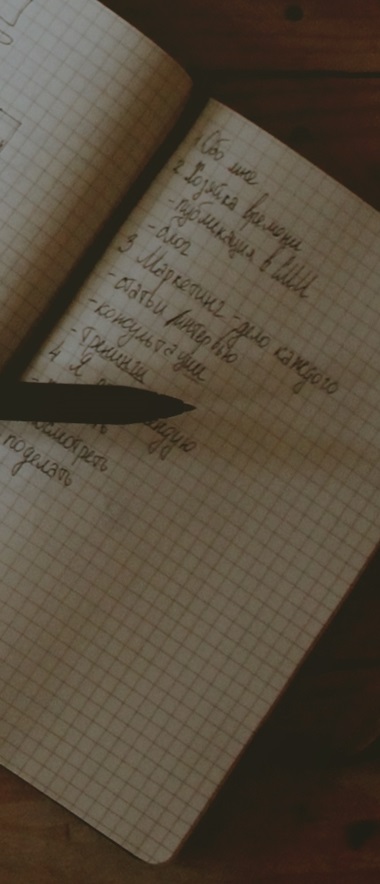 1 Обо мне
2 Хозяйка времени
- публикации в СМИ
- блог
3 Маркетинг - дело каждого
- статьи, интервью
- консультации
- тренинги
4 Я
посмотреть
поделать